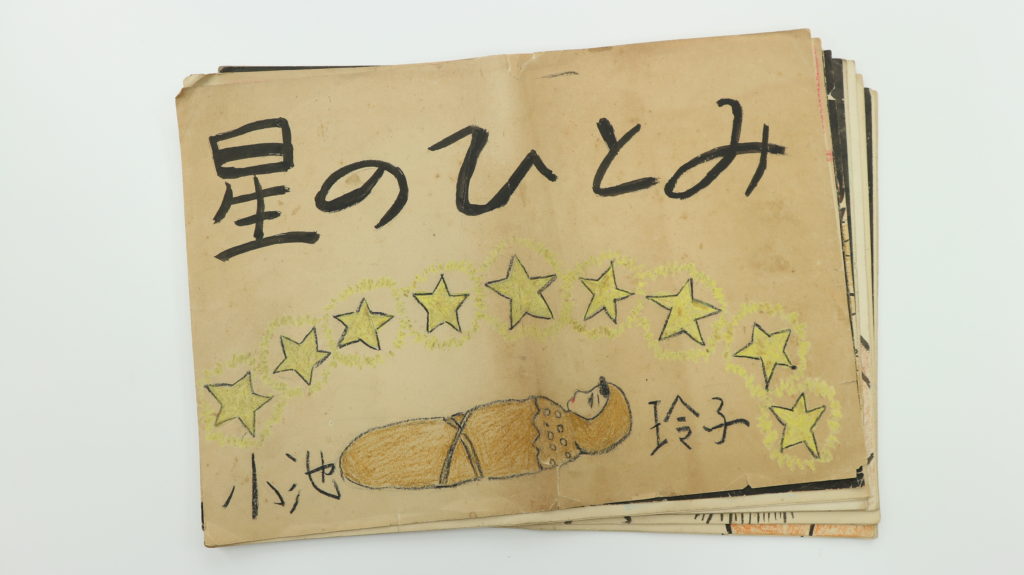 星のひとみ
小池 玲子